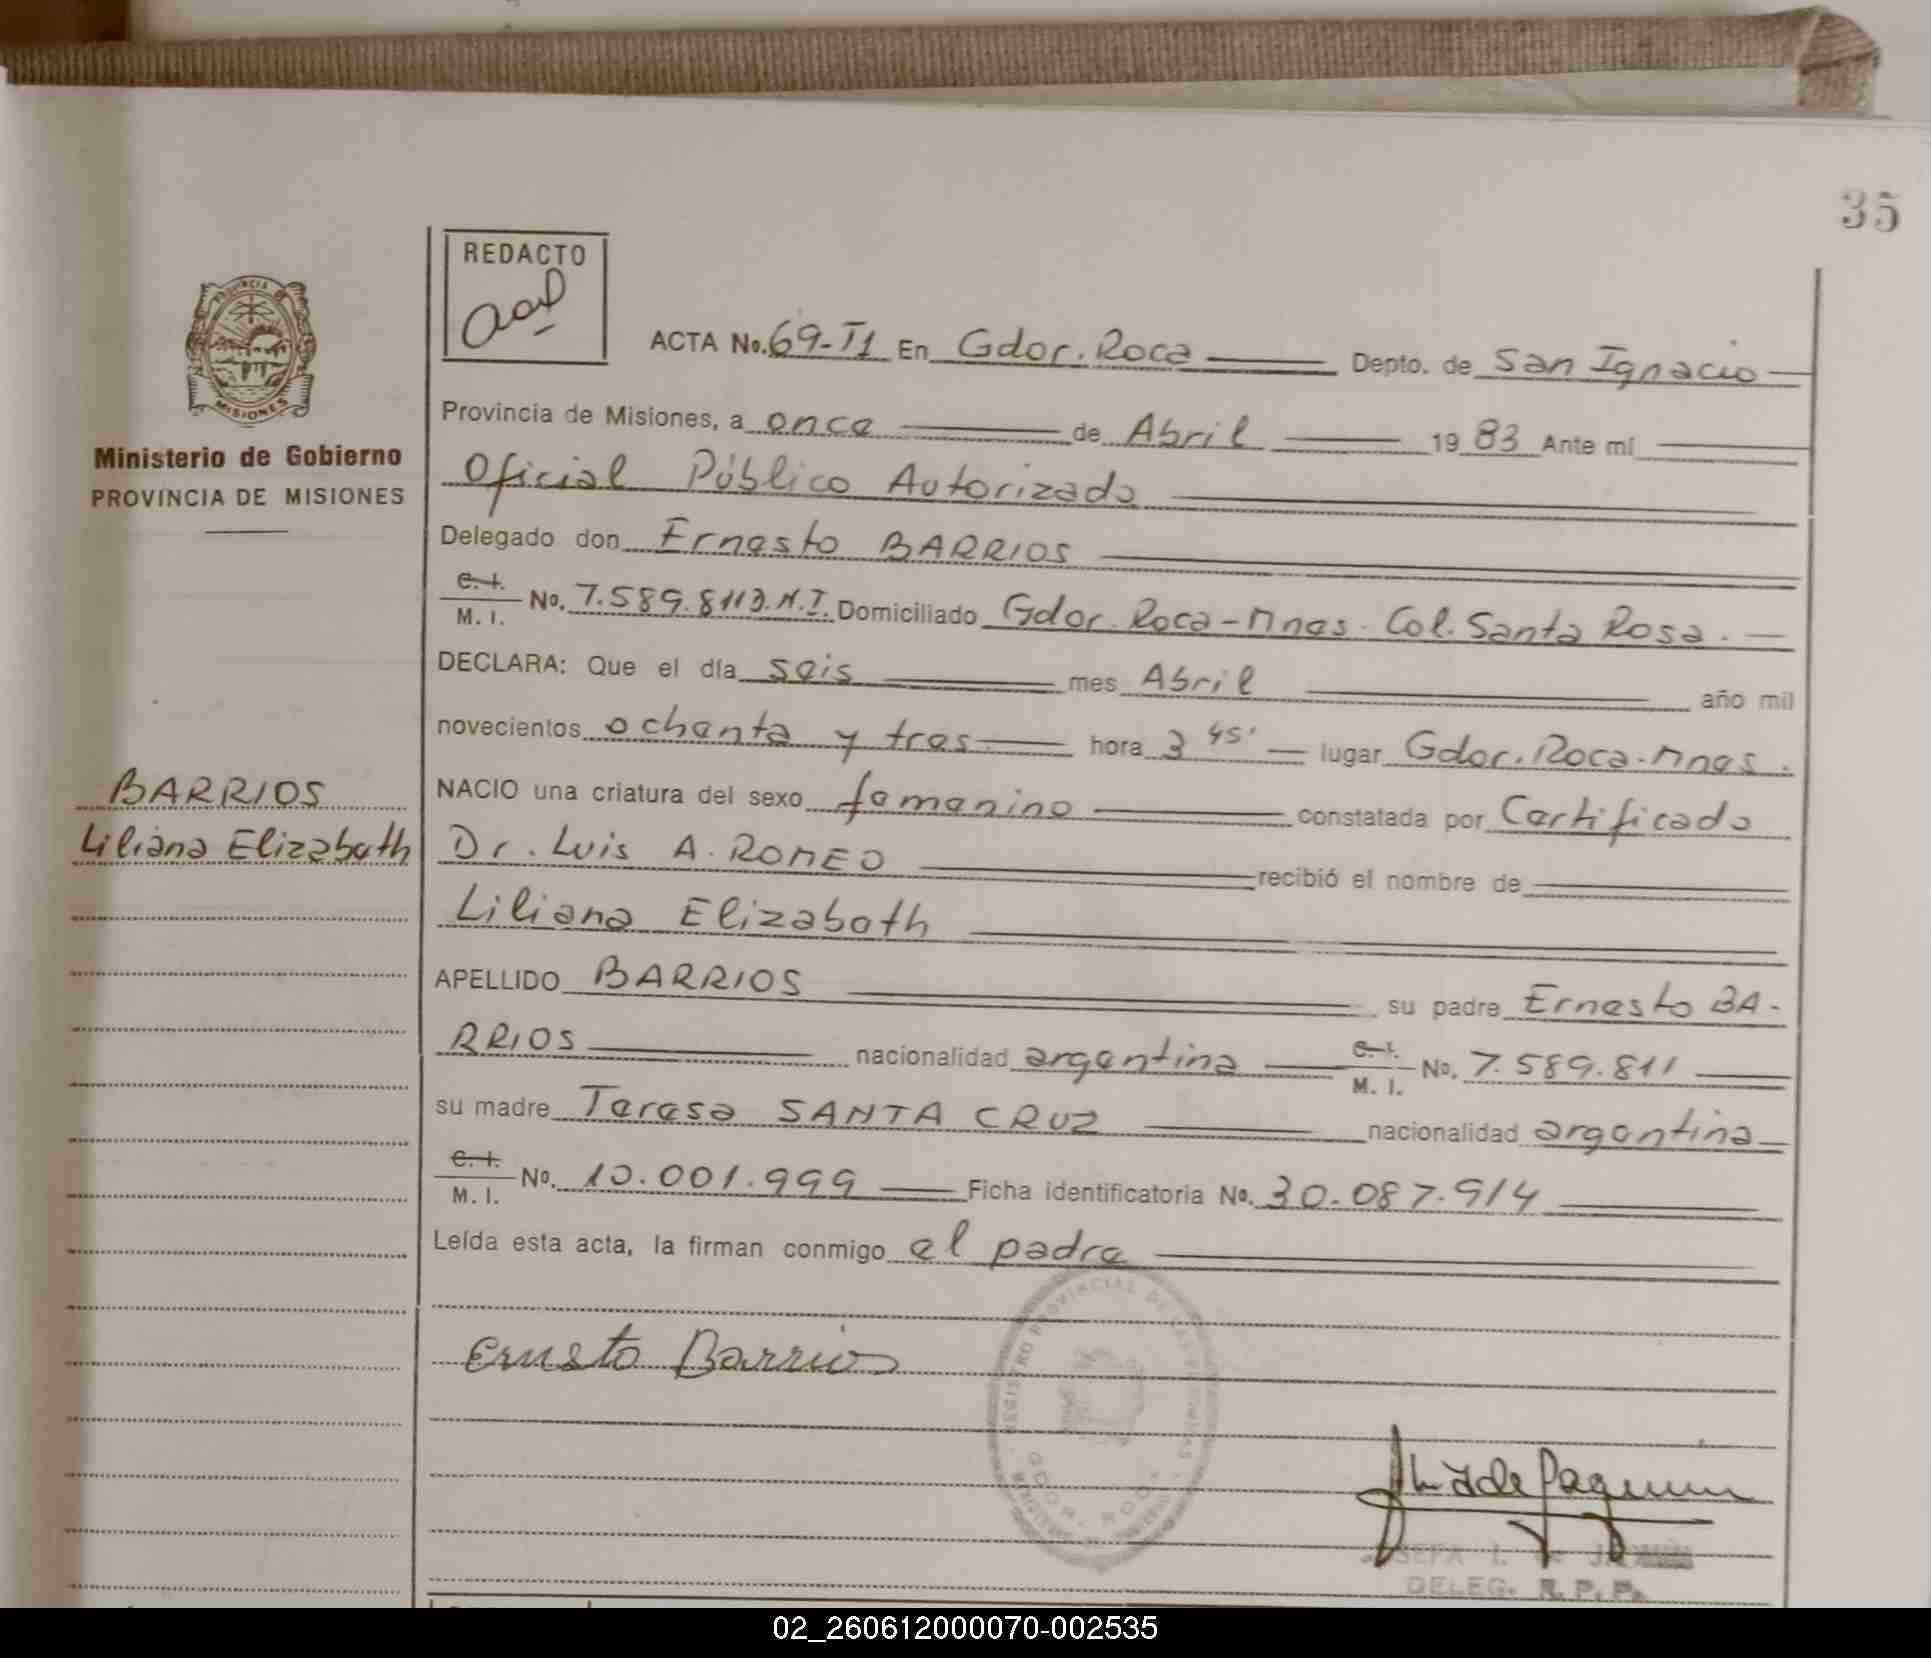 35
REDACTO
ACTA No. 69-T1 En Gdor. Roca Depto. de San Ignacio
PROVINCIA DE
MISIONES
Ministerio de Gobierno
PROVINCIA DE MISIONES
Provincia de Misiones, a once de Abril 1983 Ante mí
Oficial Público Autorizado
Delegado don Ernesto BARRIOS
C. I. M. I. No. 7.589.811 D.N.I. Domiciliado Gdor. Roca-Mnes. Col. Santa Rosa.
DECLARA: Que el día seis mes Abril año mil
novecientos ochenta y tres hora 3 45' lugar Gdor. Roca-Mnes.
BARRIOS
Liliana Elizabeth
NACIO una criatura del sexo femenino constatada por Certificado
Dr. Luis A. ROMEO recibió el nombre de
Liliana Elizabeth
APELLIDO BARRIOS su padre Ernesto BA-
RRIOS nacionalidad argentina C. I. M. I. No. 7.589.811
su madre Teresa SANTA CRUZ nacionalidad argentina
C. I. M. I. No. 10.001.999 Ficha identificatoria No. 30.087.914
Leída esta acta, la firman conmigo el padre
Ernesto Barrios
REGISTRO PROVINCIAL DE LAS PERSONAS
GDOR. ROCA
DELEG. R. P. Ps.
02_260612000070-002535